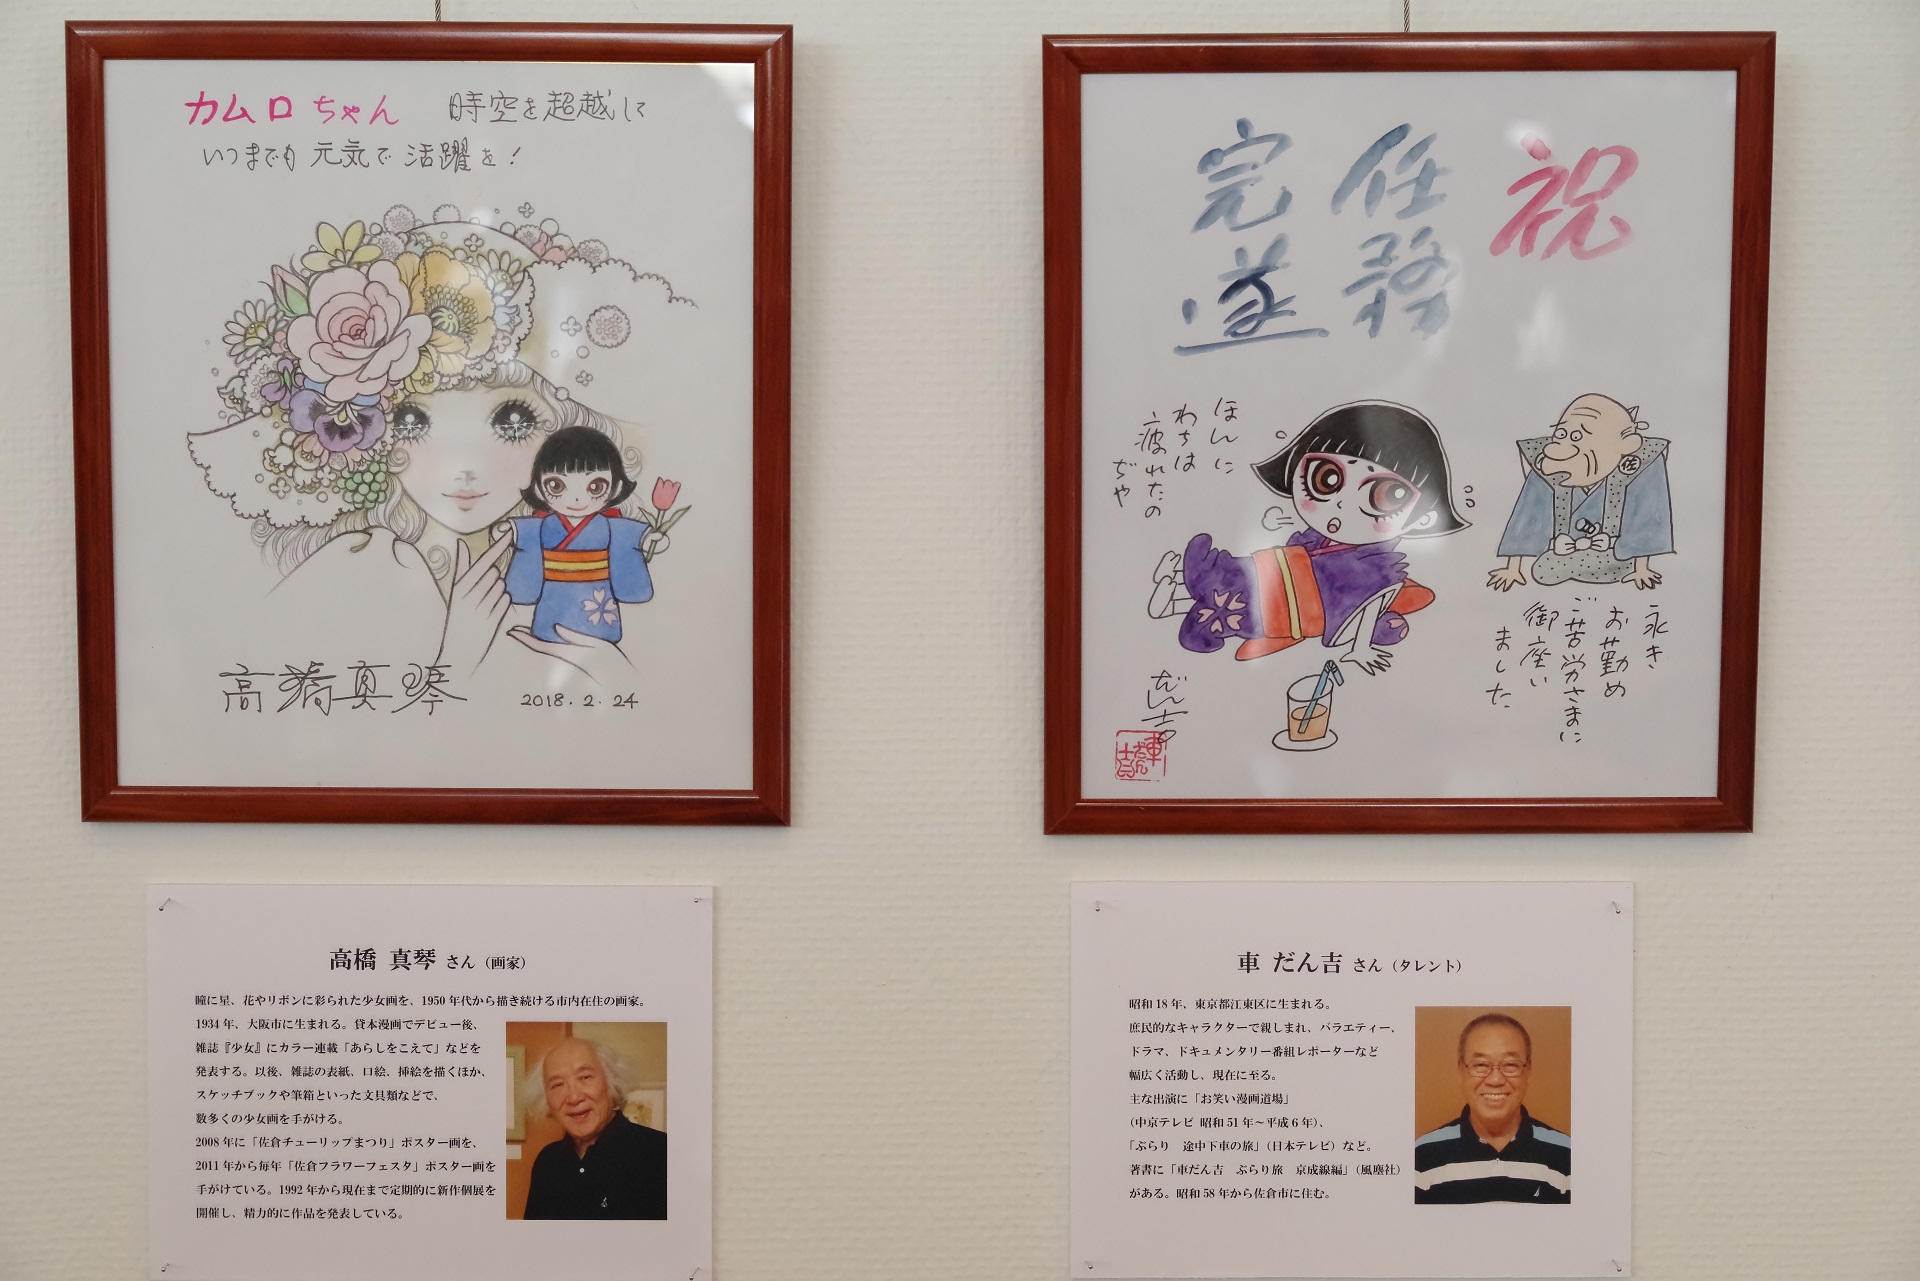 カムロちゃん 時空を超越して
いつまでも 元気で 活躍を！
高橋真琴
2018.2.24
祝
任務
完遂
ほんに
わちは
疲れたの
ぢや
佐
永き
お勤め
ご苦労さまに
御座い
ました
だん吉
車だん吉
高橋 真琴 さん（画家）
瞳に星、花やリボンに彩られた少女画を、1950年代から描き続ける市内在住の画家。
1934年、大阪市に生まれる。貸本漫画でデビュー後、
雑誌『少女』にカラー連載「あらしをこえて」などを
発表する。以後、雑誌の表紙、口絵、挿絵を描くほか、
スケッチブックや筆箱といった文具類などで、
数多くの少女画を手がける。
2008年に「佐倉チューリップまつり」ポスター画を、
2011年から毎年「佐倉フラワーフェスタ」ポスター画を
手がけている。1992年から現在まで定期的に新作個展を
開催し、精力的に作品を発表している。
車 だん吉 さん（タレント）
昭和18年、東京都江東区に生まれる。
庶民的なキャラクターで親しまれ、バラエティー、
ドラマ、ドキュメンタリー番組レポーターなど
幅広く活動し、現在に至る。
主な出演に「お笑い漫画道場」
（中京テレビ 昭和51年～平成6年）、
「ぶらり 途中下車の旅」（日本テレビ）など。
著書に「車だん吉 ぶらり旅 京成線編」（風塵社）
がある。昭和58年から佐倉市に住む。